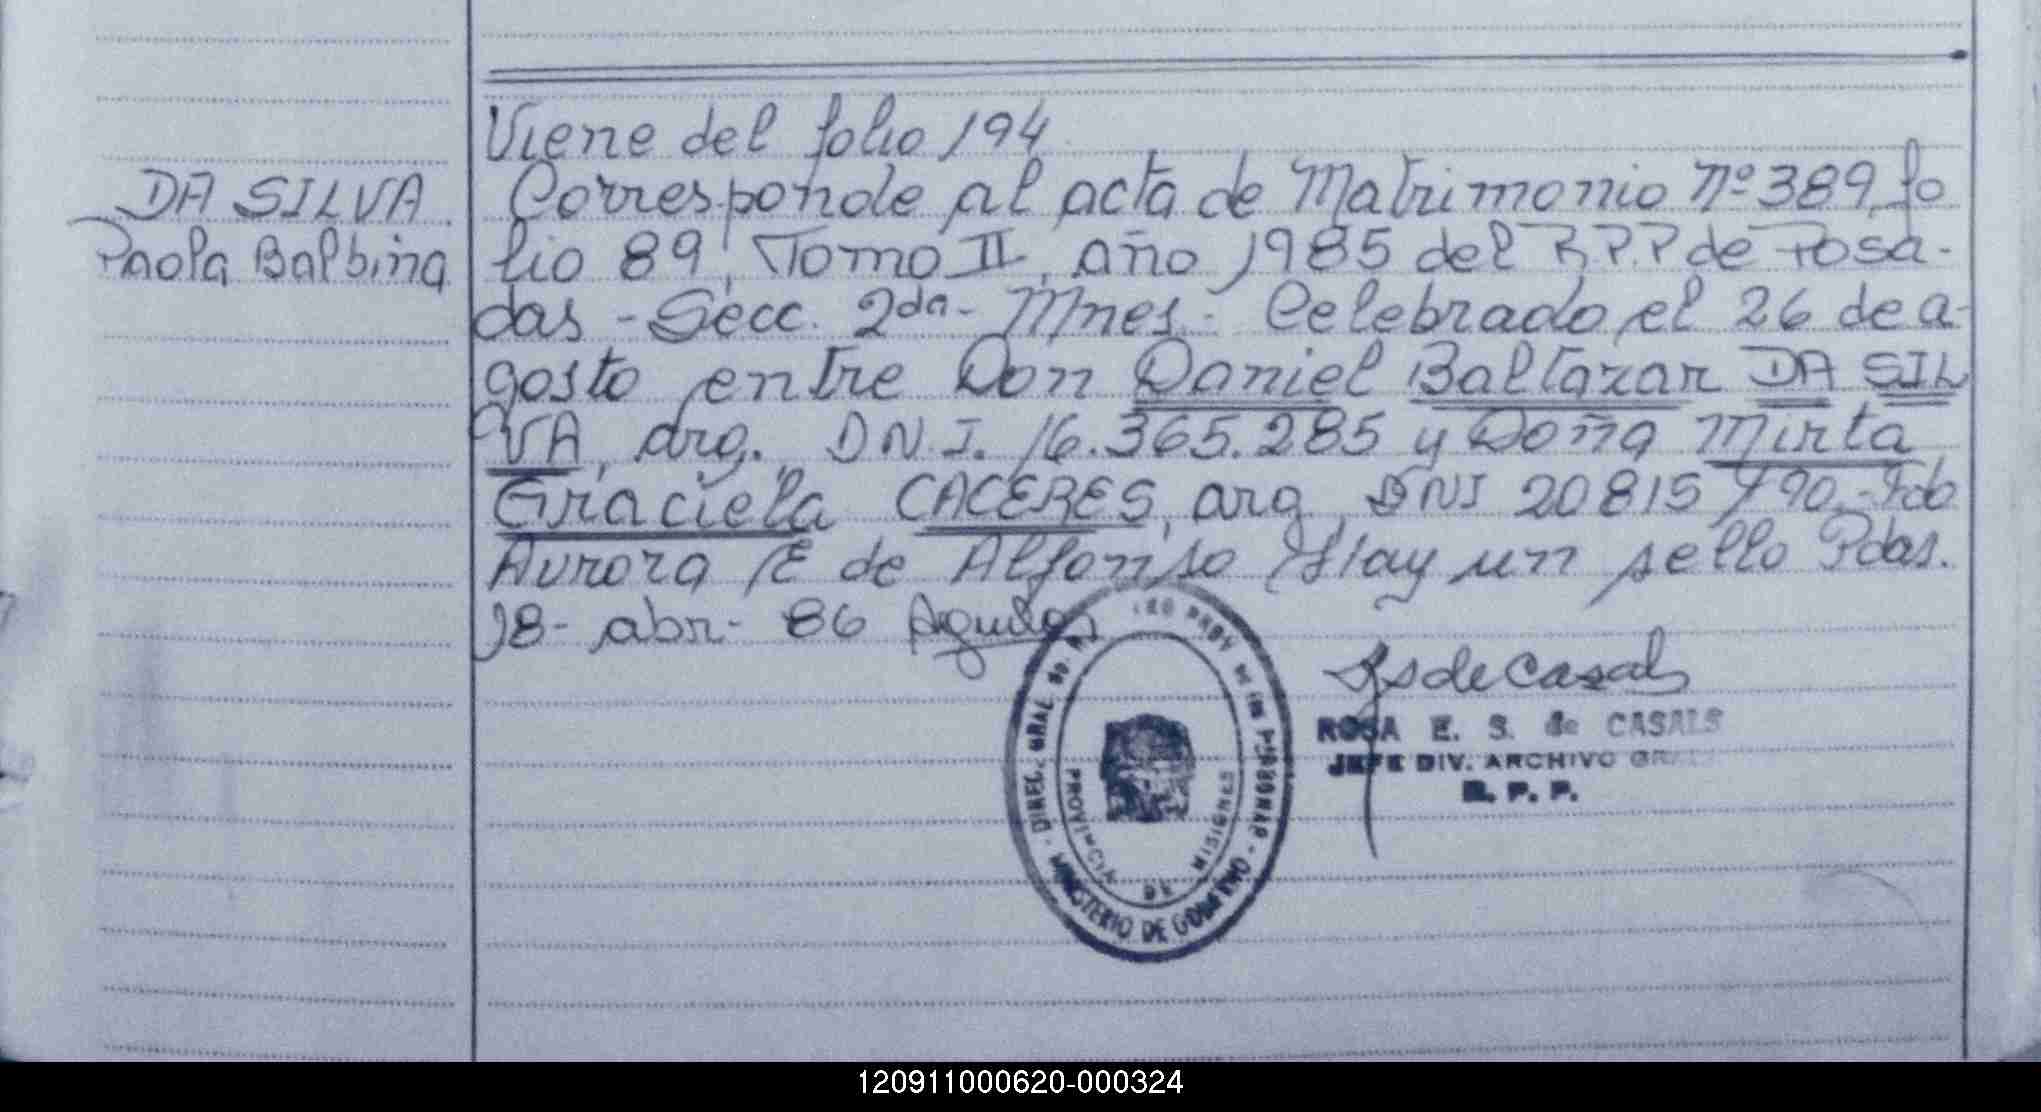 Viene del folio 194
DA SILVA
Paola Balbina
Corresponde al acta de Matrimonio Nº 389, fo
lio 89, Tomo II, año 1985 del R.P.P de Posa-
das - Secc. 2da - Mnes - Celebrado el 26 de a-
gosto entre Don Daniel Baltazar DA SIL
VA, arg. D.N.I. 16.365.285 y Doña Mirta
Graciela CACERES, arg, DNI 20815790.- Fdo
Aurora E de Alfonso Hay un sello Pdas.
18- abr- 86
DIREC. GRAL
DE LAS PERSONAS
MINISTERIO DE GOBIERNO
PROVINCIA DE MISIONES
RS de Casals
ROSA E. S. de CASALS
JEFE DIV. ARCHIVO GRAL
R. P. P.
120911000620-000324